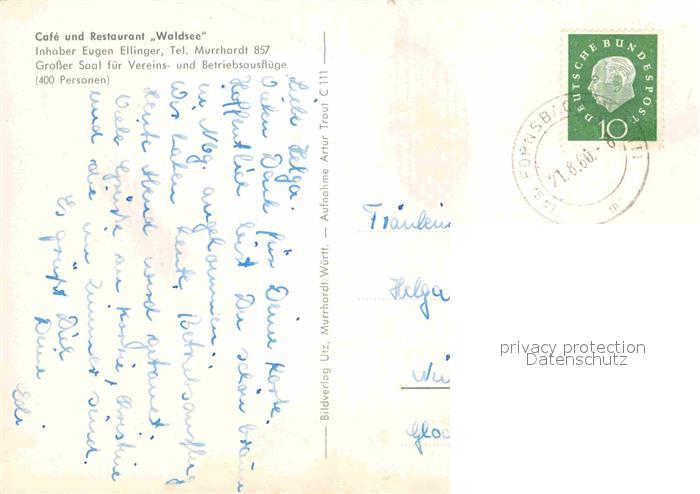 Café und Restaurant „Waldsee"
Inhaber Eugen Ellinger, Tel. Murrhardt 857
Großer Saal für Vereins- und Betriebsausflüge
(400 Personen)
Liebe Helga.
Vielen Dank für Deine Karte.
Hoffentlich bist Du schön braun
in Nbg. angekommen.
Wir haben heute Betriebsausflug
Heute Abend wird getanzt.
Viele Grüße an Christine
und die im Zimmer sind.
Es grüßt Dich
Deine
Edi
Bildverlag Utz, Murrhardt Württ. — Aufnahme Artur Traut C 111
DEUTSCHE BUNDESPOST
10
FORNSBA
21.8.60.-
Fräulein
Helga
privacy protection
Datenschutz